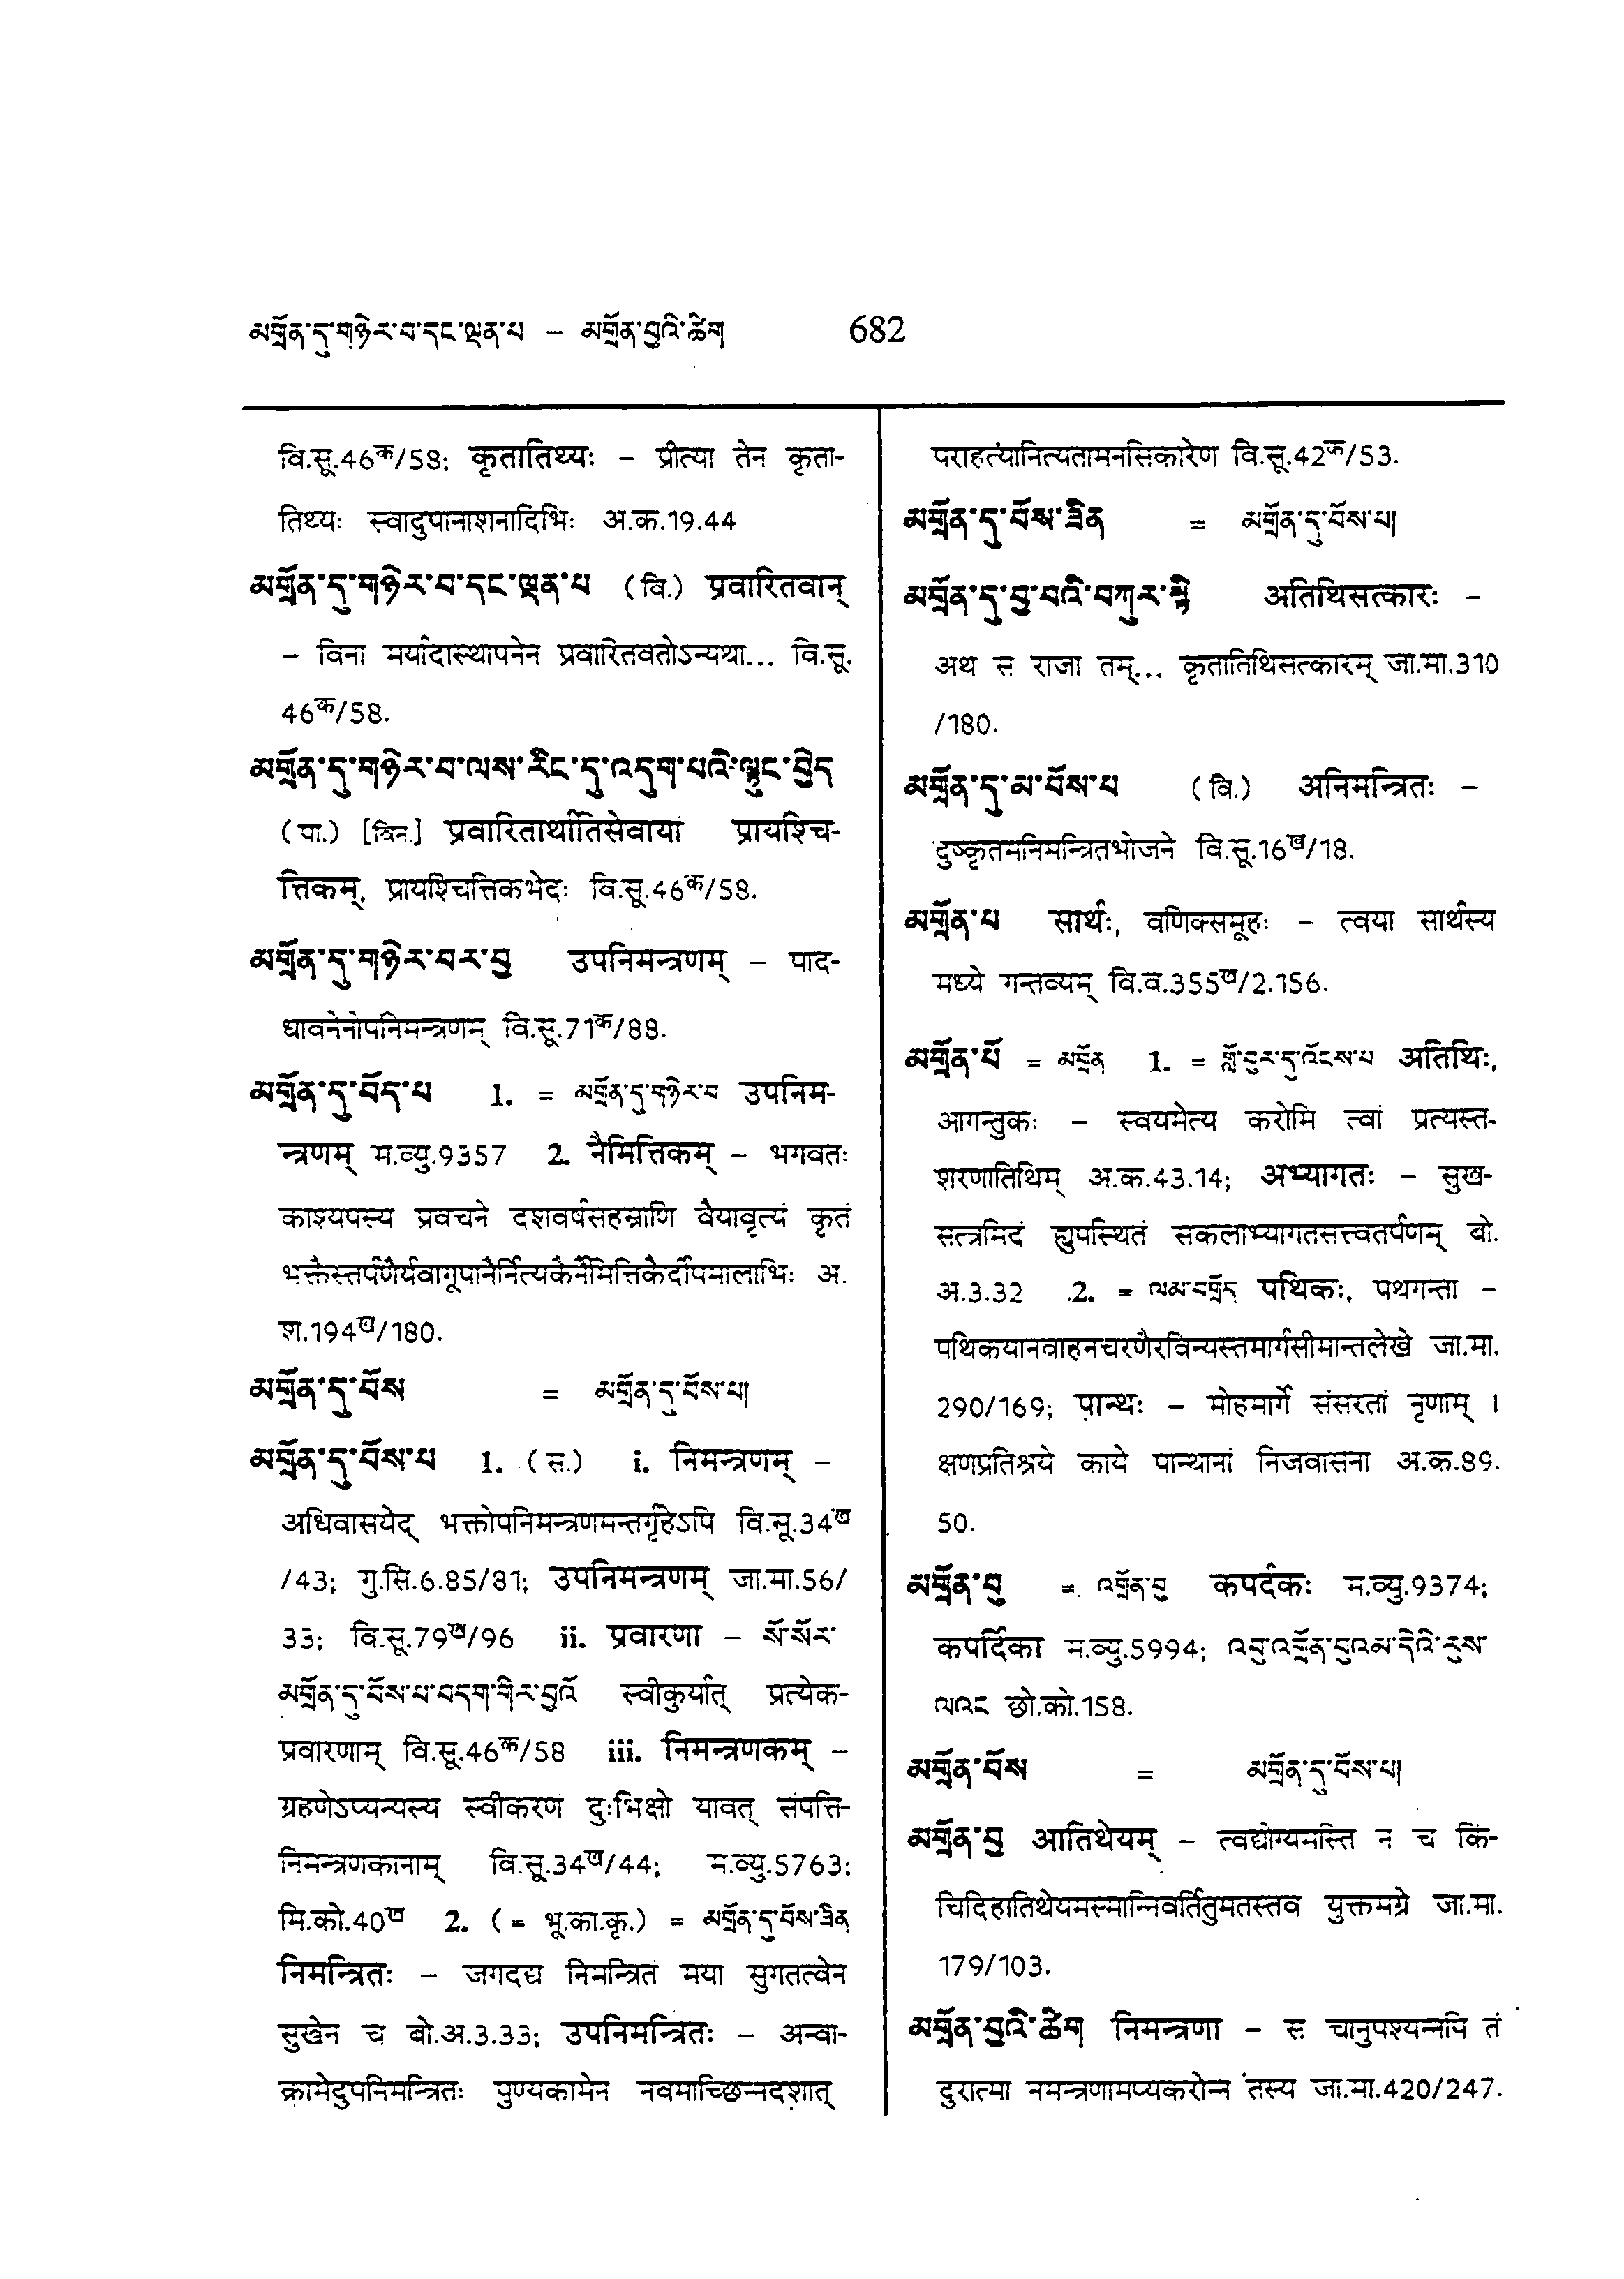 མགྲོན་དུ་གཉེར་བ་དང་ལྡན་པ – མགྲོན་བྱའི་ཚིག 682
वि.सू.46क/58; कृतातिथ्यः – प्रीत्या तेन कृता-
तिथ्यः स्वादुपानाशनादिभिः अ.क.19.44
མགྲོན་དུ་གཉེར་བ་དང་ལྡན་པ (वि.) प्रवारितवान्
– विना मर्यादास्थापनेन प्रवारितवतोऽन्यथा... वि.सू.
46क/58.
མགྲོན་དུ་གཉེར་བ་ལས་རིང་དུ་འདུག་པའི་ལྟུང་བྱེད
(पा.) [विन.] प्रवारितार्थातिसेवायां प्रायश्चि-
त्तिकम्, प्रायश्चित्तिकभेदः वि.सू.46क/58.
མགྲོན་དུ་གཉེར་བར་བྱ उपनिमन्त्रणम् – पाद-
धावनेनोपनिमन्त्रणम् वि.सू.71क/88.
མགྲོན་དུ་བོད་པ 1. = མགྲོན་དུ་གཉེར་བ उपनिम-
न्त्रणम् म.व्यु.9357 2. नैमित्तिकम् – भगवतः
काश्यपस्य प्रवचने दशवर्षसहस्राणि वैयावृत्यं कृतं
भक्तैस्तर्पणैर्यवागूपानैर्नित्यकैर्नैमित्तिकैर्दीपमालाभिः अ.
श.194ख/180.
མགྲོན་དུ་བོས = མགྲོན་དུ་བོས་པ།
མགྲོན་དུ་བོས་པ 1. (सं.) i. निमन्त्रणम् –
अधिवासयेद् भक्तोपनिमन्त्रणमन्तर्गृहेऽपि वि.सू.34ख
/43; गु.सि.6.85/81; उपनिमन्त्रणम् जा.मा.56/
33; वि.सू.79ख/96 ii. प्रवारणा – སོ་སོར་
མགྲོན་དུ་བོས་པ་བདག་གིར་བྱའོ स्वीकुर्यात् प्रत्येक-
प्रवारणाम् वि.सू.46क/58 iii. निमन्त्रणकम् –
ग्रहणेऽप्यन्यस्य स्वीकरणं दुःभिक्षो यावत् संपत्ति-
निमन्त्रणकानाम् वि.सू.34ख/44; म.व्यु.5763;
मि.को.40ख 2. (= भू.का.कृ.) = མགྲོན་དུ་བོས་ཟིན
निमन्त्रितः – जगदद्य निमन्त्रितं मया सुगतत्वेन
सुखेन च बो.अ.3.33; उपनिमन्त्रितः – अन्वा-
क्रामेदुपनिमन्त्रितः पुण्यकामेन नवमाच्छिन्नदशात्
पराहत्यानित्यतामनसिकारेण वि.सू.42क/53.
མགྲོན་དུ་བོས་ཟིན = མགྲོན་དུ་བོས་པ།
མགྲོན་དུ་བྱ་བའི་བཀུར་སྟི अतिथिसत्कारः –
अथ स राजा तम्... कृतातिथिसत्कारम् जा.मा.310
/180.
མགྲོན་དུ་མ་བོས་པ (वि.) अनिमन्त्रितः –
दुष्कृतमनिमन्त्रितभोजने वि.सू.16ख/18.
མགྲོན་པ सार्थः, वणिक्समूहः – त्वया सार्थस्य
मध्ये गन्तव्यम् वि.व.355ख/2.156.
མགྲོན་པོ = མགྲོན 1. = གློ་བུར་དུ་འོངས་པ अतिथिः,
आगन्तुकः – स्वयमेत्य करोमि त्वां प्रत्यस्त-
शरणातिथिम् अ.क.43.14; अभ्यागतः – सुख-
सत्त्रमिदं ह्युपस्थितं सकलाभ्यागतसत्त्वतर्पणम् बो.
अ.3.32 2. = ལམ་བགྲོད पथिकः, पथगन्ता –
पथिकयानवाहनचरणैरविन्यस्तमार्गसीमान्तलेखे जा.मा.
290/169; पान्थः – मोहमार्गे संसरतां नृणाम् ।
क्षणप्रतिश्रये काये पान्थानां निजवासना अ.क.89.
50.
མགྲོན་བུ = འགྲོན་བུ कपर्दकः म.व्यु.9374;
कपर्दिका म.व्यु.5994; འབུ་འགྲོན་བུའམ་དེའི་རུས་
ལའང छो.को.158.
མགྲོན་བོས = མགྲོན་དུ་བོས་པ།
མགྲོན་བྱ आतिथेयम् – त्वद्योग्यमस्ति न च किं-
चिदिहातिथेयमस्मान्निवर्तितुमतस्तव युक्तमग्रे जा.मा.
179/103.
མགྲོན་བྱའི་ཚིག निमन्त्रणा – स चानुपश्यन्नपि तं
दुरात्मा नमन्त्रणामप्यकरोन्न तस्य जा.मा.420/247.